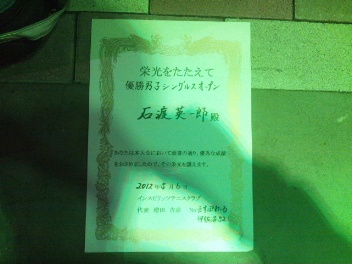 栄光をたたえて
優勝男子シングルスオープン
石渡英一郎殿
あなたは本大会において頭書の通り、優秀な成績
をおさめましたので、その栄誉を讃えます。
2012年5月6日
インスピリッツテニスクラブ
代表